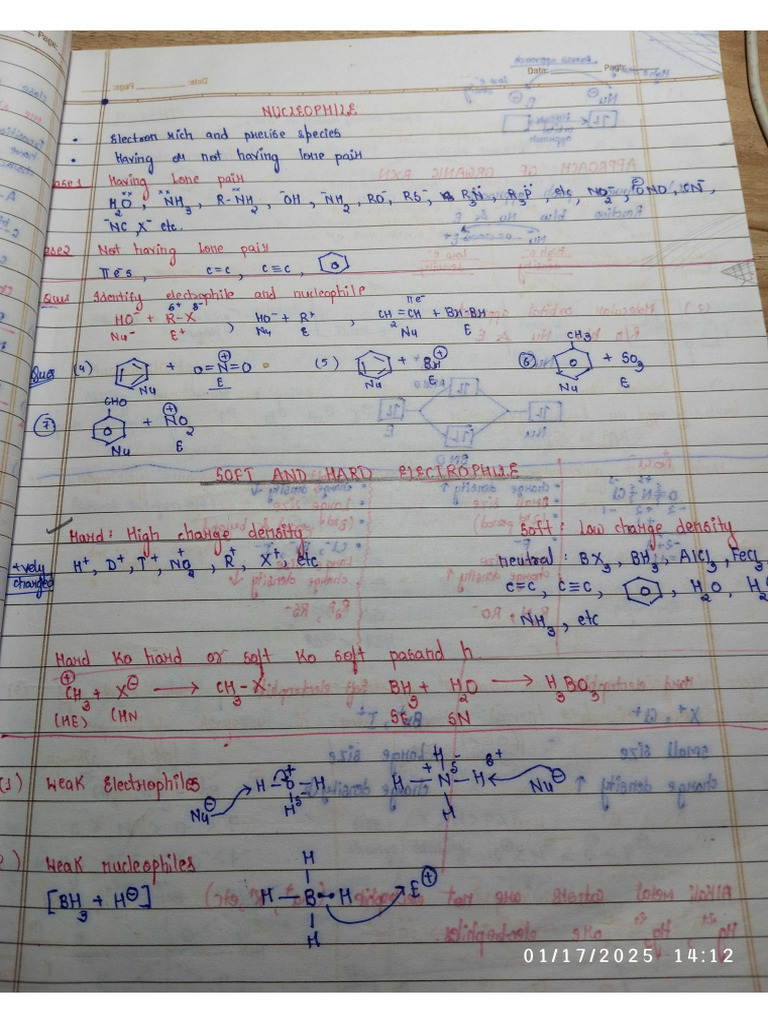 Date: Page:
NUCLEOPHILE
• Electron rich and precise species
• Having or not having lone pair
ase 1 Having lone pair
H₂O, NH₃, R-NH₂, ⁻OH, ⁻NH₂, RO⁻, RS⁻, R₃N, R₃P, etc, NO₂⁻, ONO, CN⁻
⁻NC, X⁻ etc.
ase 2 Not having lone pair
πe⁻s, C=C, C≡C,
Ques Identify electrophile and nucleophile
HO⁻ + R-X, HO⁻ + R⁺, CH₂=CH + BH-BH
δ⁺ δ⁻ πe⁻
Nu⁻ E⁺ Nu E Nu E
Ques (4) + O=N⁺=O (5) + BH⁺ (6) CH₃ + SO₃
Nu E Nu E Nu E
(7) CHO + NO₂⁺
Nu E
SOFT AND HARD ELECTROPHILE
Hard: High charge density Soft: Low charge density
+vely charged H⁺, D⁺, T⁺, NO₂⁺, R⁺, X⁺, etc neutral: BX₃, BH₃, AlCl₃, FeCl
C=C, C≡C, , H₂O, H₂
NH₃, etc
Hard ko hard or soft ko soft pasand h.
CH₃⁺ + X⁻ → CH₃-X BH₃ + H₂O → H₃BO₃
(HE) (HN SE SN
(1) Weak Electrophiles H-B-H H-N-H
Nu⁻ H H H Nu⁻
) Weak nucleophiles
[BH₃ + H⁻] H-B-H E⁺
H H
01/17/2025 14:12